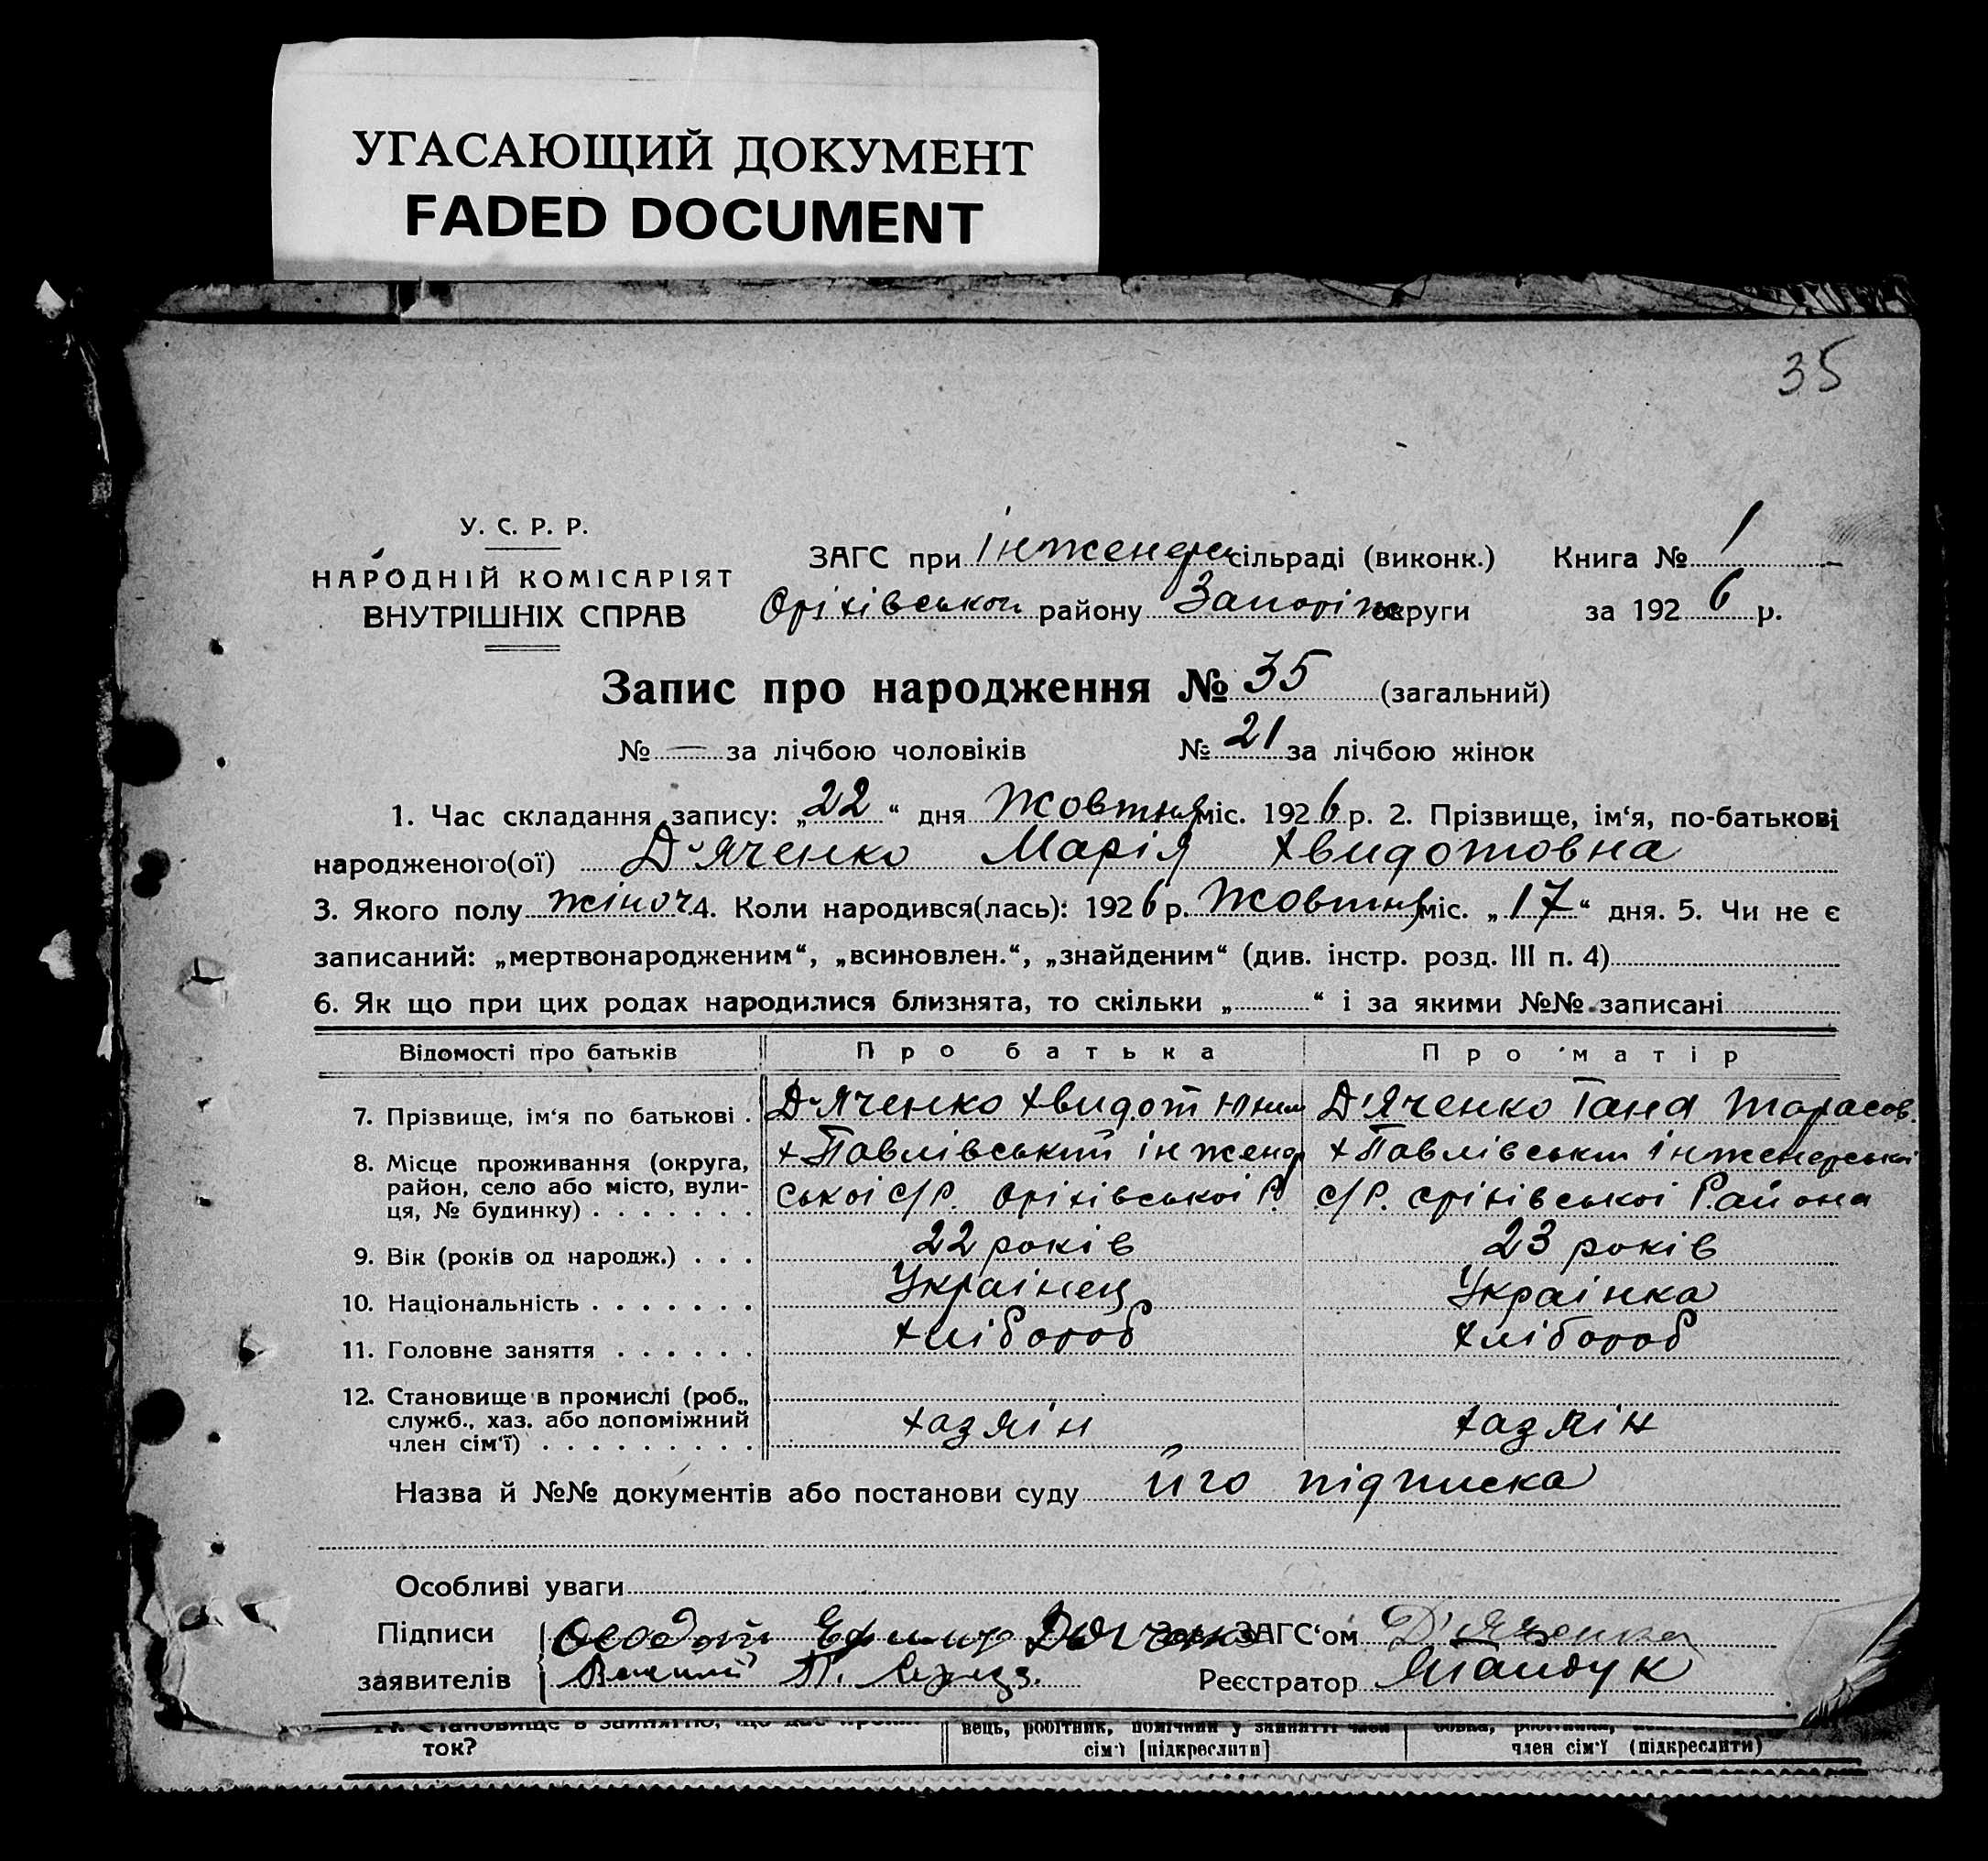 УГАСАЮЩИЙ ДОКУМЕНТ
FADED DOCUMENT
35
У. С. Р. Р.
НАРОДНІЙ КОМІСАРІЯТ
ВНУТРІШНІХ СПРАВ
ЗАГС при Інженерн сільраді (виконк.) Книга № 1
Оріхівськои району Запоріж округи за 1926 р.
Запис про народження № 35 (загальний)
№ — за лічбою чоловіків № 21 за лічбою жінок
1. Час складання запису: „22“ дня Жовтня міс. 1926 р. 2. Прізвище, ім‘я, по-батькові
народженого(ої) Д'Яченко Марія Хвидотовна
3. Якого полу жіноч. 4. Коли народився(лась): 1926 р. Жовтня міс. „17“ дня. 5. Чи не є
записаний: „мертвонародженим“, „всиновлен.“, „знайденим“ (див. інстр. розд. III п. 4)
6. Як що при цих родах народилися близнята, то скільки „ “ і за якими №№ записані
Відомості про батьків Про батька Про матір
7. Прізвище, ім‘я по батькові . Д'Яченко Хвидот Д'Яченко Гана Тарасов.
8. Місце проживання (округа, район, село або місто, вулиця, № будинку) . . . . . . . х Павлівський інженер х Павлівськи інженерської
ськоі с/Р. Оріхівськоі Р. с/Р. оріхівськоі Району
9. Вік (років од народж.) . . . 22 років 23 років
10. Національність . . . . . . . Українец Українка
11. Головне заняття . . . . . . хлібороб хлібороб
12. Становище в промислі (роб., служб., хаз. або допоміжний член сім‘ї) . . . . . . . . . хазяін хазяін
Назва й №№ документів або постанови суду його підписка
Особливі уваги
Підписи заявителів
Зав. ЗАГС‘ом Д'Яченко
Реєстратор
ток?
вець, робітник, помічний у занятті член
сім‘ї [підкреслити]
член сім‘ї (підкреслити)